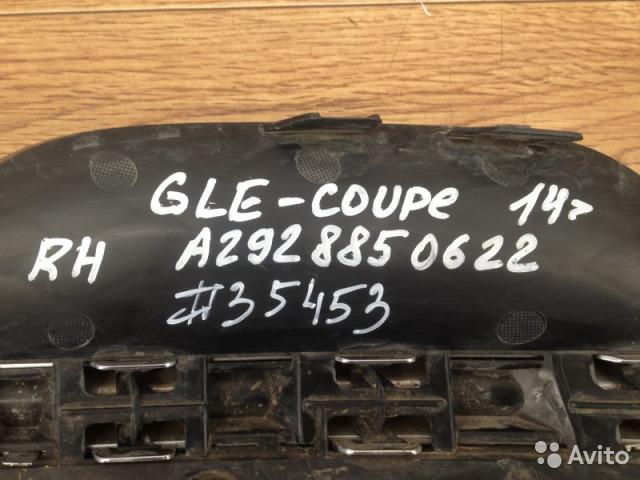 GLE-COUPE 14>
RH A2928850622
#35453
Avito